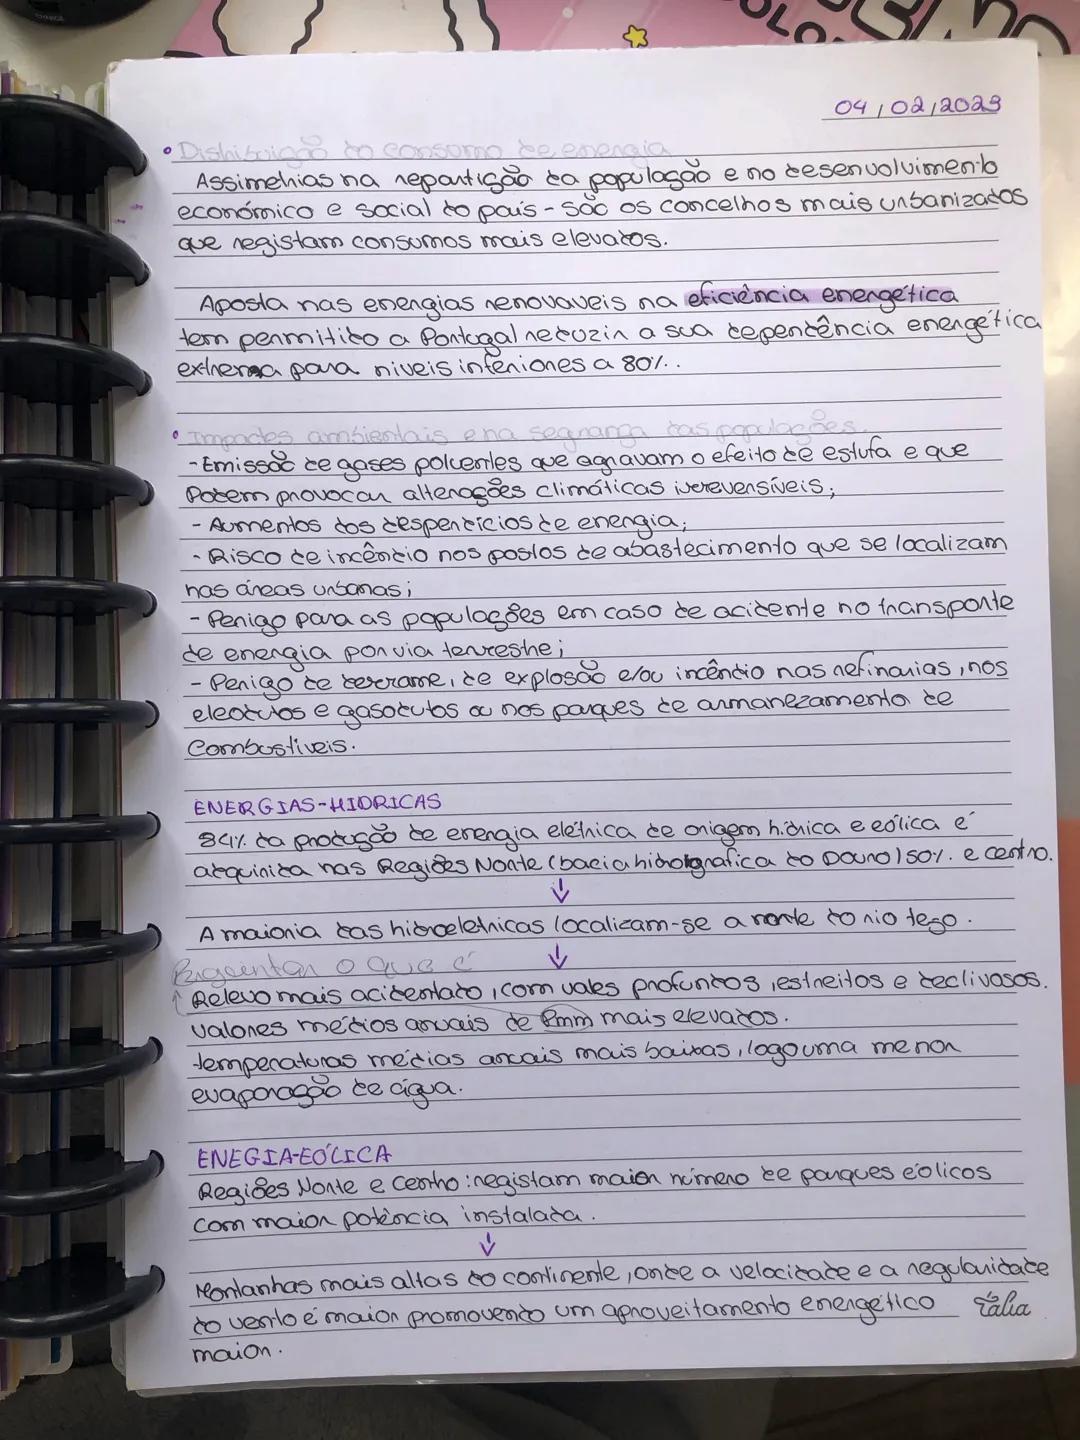 04/02/2023
• Distribuição do consumo de energia
Assimetrias na repartição da população e no desenvolvimento
económico e social do país - são os concelhos mais urbanizados
que registam consumos mais elevados.
Aposta nas energias renovaveis na eficiência energética
tem permitido a Portugal reduzir a sua dependência energética
externa para niveis inferiores a 80%..
• Impactes ambientais e na segnança das populações.
- Emissão de gases poluentes que agravam o efeito de estufa e que
Podem provocar alterações climáticas irreversíveis;
- Aumentos dos desperdicios de energia;
- Risco de incêncio nos postos de abastecimento que se localizam
nas áreas urbanas;
- Perigo para as populações em caso de acidente no transporte
de energia por via terrestre;
- Perigo de derrame, de explosão e/ou incêndio nas refinarias, nos
eleodutos e gasodutos ou nos parques de armanezamento de
Combustiveis.
ENERGIAS-HIDRICAS
84% da produção de energia elétrica de origem hídrica e eólica é
adquirida nas Regiões Norte (bacia hidrografica do Douro) 50%. e centro.
↓
A maioria das hidroelétricas localizam-se a norte do rio tejo.
↓
Perguntar o que é
↑ Relevo mais acidentado, com vales profundos, estreitos e declivosos.
valores médios anuais de Rmm mais elevados.
temperaturas médias anuais mais baixas, logo uma menor
evaporação de água.
ENEGIA-EÓLICA
Regiões Norte e Centro: registam maior número de parques eólicos
com maior potência instalada.
↓
Montanhas mais altas do continente, onde a velocidade e a regularidade
do vento é maior promovendo um aproveitamento energético
maior.
Tália